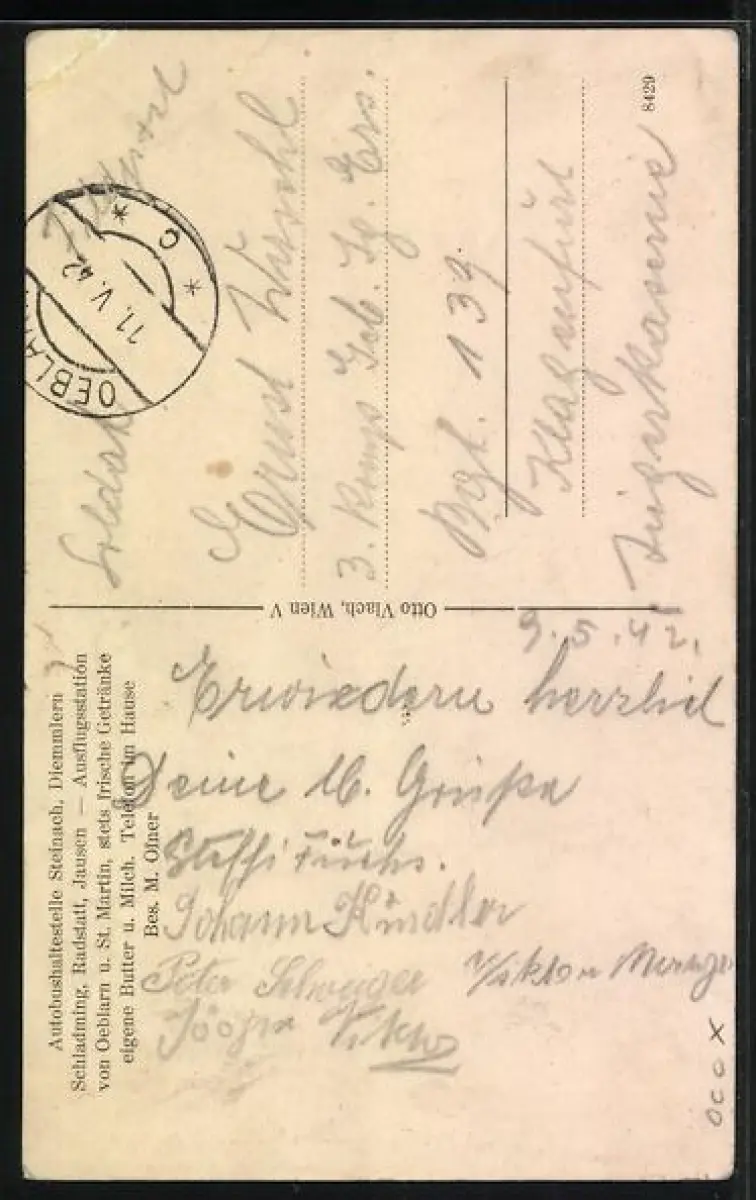 Autobushaltestelle Steinach, Diemmlern
Schladming, Radstatt, Jausen — Ausflugsstation
von Oeblarn u. St. Martin, stets frische Getränke
eigene Butter u. Milch. Telefon im Hause
Bes. M. Ofner
9.5.42.
Erwiedern herzlich
Deine lb. Grüße
Steffi Fuchs.
Johann Kindler
Peter
Viktor
Otto Vlach, Wien V
OEBLA
11.V.42
* c *
Feldpost
Soldat
Ernst
3. Komp. Geb. Jg. Ers.
Bgl. 139
Klagenfurt
Jägerkaserne
8429